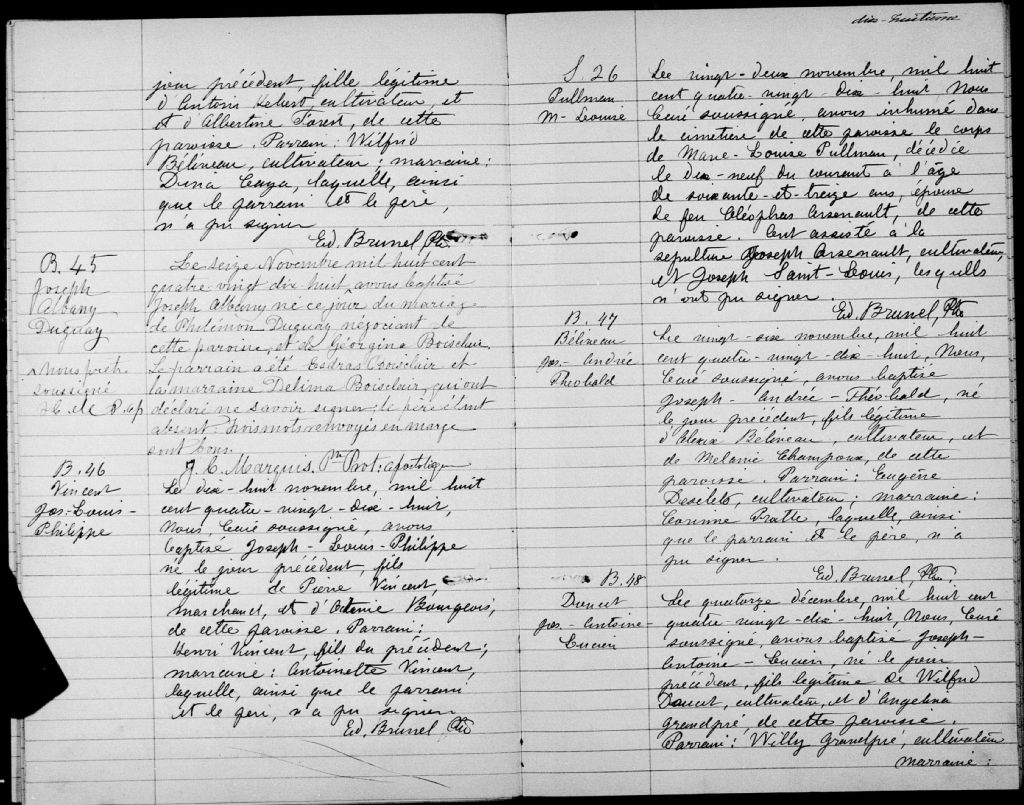 jour précédent, fille légitime
d'Antoni Hébert, cultivateur, et
et d'Albertine Forest, de cette
paroisse. Parrain: Wilfrid
Bélineau, cultivateur; marraine:
Dina Caya, laquelle, ainsi
que le parrain et le père,
n'a pu signer
Ed. Brunel, Ptre
B. 45
Joseph
Albany
Duguay
Nous prêtre
soussigné
Le seize Novembre mil huit cent
quatre vingt dix-huit, avons baptisé
Joseph Albany né ce jour du mariage
de Philémon Duguay négociant de
cette paroisse, et de Géorgina Boisclair.
Le parrain a été Esdras Boisclair et
la marraine Delima Boisclair, qui ont
déclaré ne savoir signer; le père étant
absent. Trois mots renvoyés en marge
sont bons.
J. C. Marquis, Ptre Prot: apostolique
B. 46
Vincent
Jos.-Louis-
Philippe
Le dix-huit novembre, mil huit
cent quatre-vingt-dix-huit,
Nous, Curé soussigné, avons
baptisé Joseph-Louis-Philippe
né le jour précédent, fils
légitime de Pierre Vincent,
marchand, et d'Octavie Bourgeois,
de cette paroisse. Parrain:
Henri Vincent, fils du précédent;
marraine: Antoinette Vincent,
laquelle, ainsi que le parrain
et le père, n'a pu signer
Ed. Brunel, Ptre
dix-huitième
S. 26
Pullman
M-Louise
Le vingt-deux novembre, mil huit
cent quatre-vingt-dix-huit Nous
Curé soussigné, avons inhumé dans
le cimetière de cette paroisse le corps
de Marie-Louise Pullman, décédée
le dix-neuf du courant à l'âge
de soixante-et-treize ans, épouse
de feu Cléophas Arsenault, de cette
paroisse. Ont assisté à la
sépulture Joseph Arsenault, cultivateur,
et Joseph Saint-Louis, lesquels
n'ont pu signer.
Ed. Brunel, Ptre
B. 47
Bélineau
Jos.-André
Théobald
Le vingt-six novembre, mil huit
cent quatre-vingt-dix-huit, Nous,
Curé soussigné, avons baptisé
Joseph-André-Théobald, né
le jour précédent, fils légitime
d'Alexis Bélineau, cultivateur, et
de Mélanie Champoux, de cette
paroisse. Parrain: Eugène
Desilets, cultivateur; marraine:
Corinne Pratte, laquelle, ainsi
que le parrain et le père, n'a
pu signer.
Ed. Brunel, Ptre.
B. 48
Doucet
Jos.-Antoine-
Lucien
Le quatorze décembre, mil huit cent
quatre-vingt-dix-huit Nous, Curé
soussigné, avons baptisé Joseph-
Antoine-Lucien, né le jour
précédent, fils légitime de Wilfrid
Doucet, cultivateur, et d'Angelina
Grandpré, de cette paroisse.
Parrain: Willy Grandpré, cultivateur
marraine: